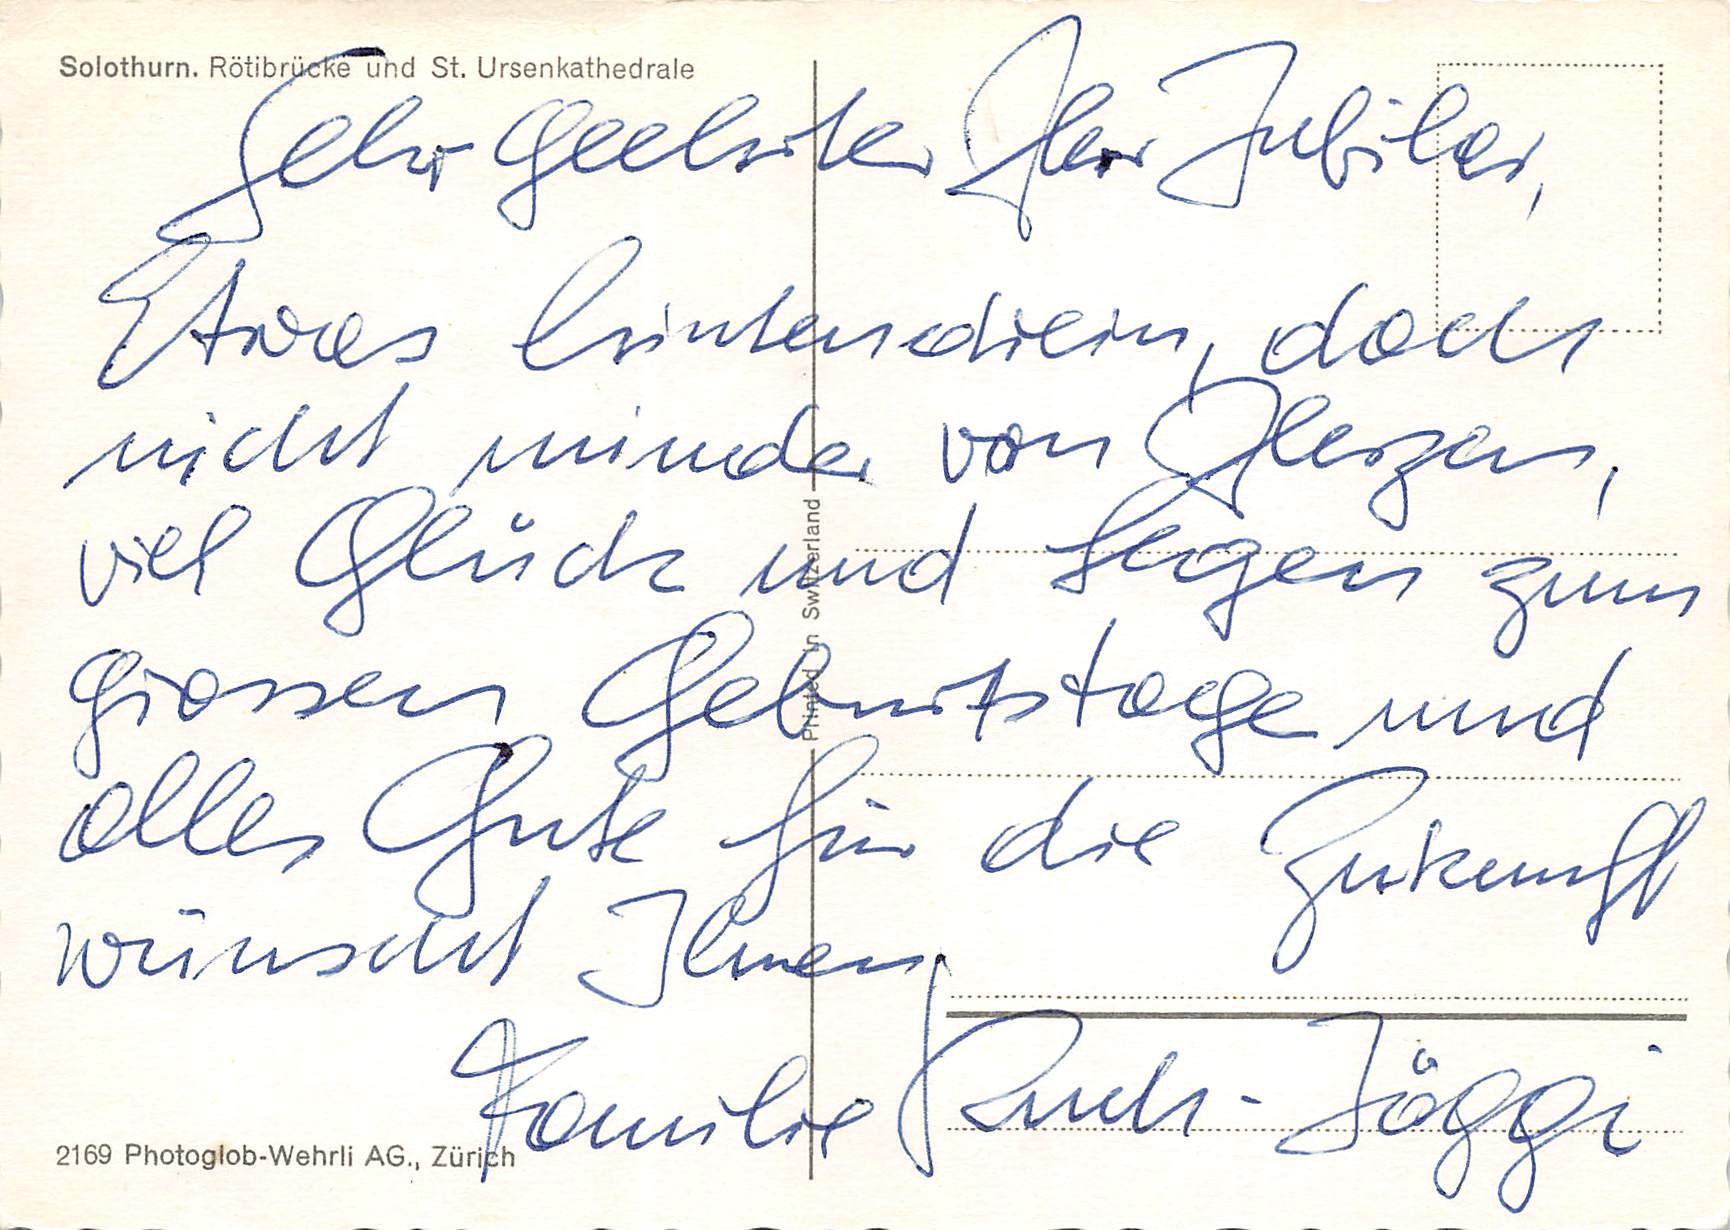 Solothurn. Rötibrücke und St. Ursenkathedrale
Sehr Geehrter Herr Jubilar,
Etwas hintendrein, doch
nicht minder von Herzen,
viel Glück und Segen zum
grossen Geburtstage und
alles Gute für die Zukunft
wünscht Ihnen
Familie - Jäggi
Printed in Switzerland
2169 Photoglob-Wehrli AG., Zürich